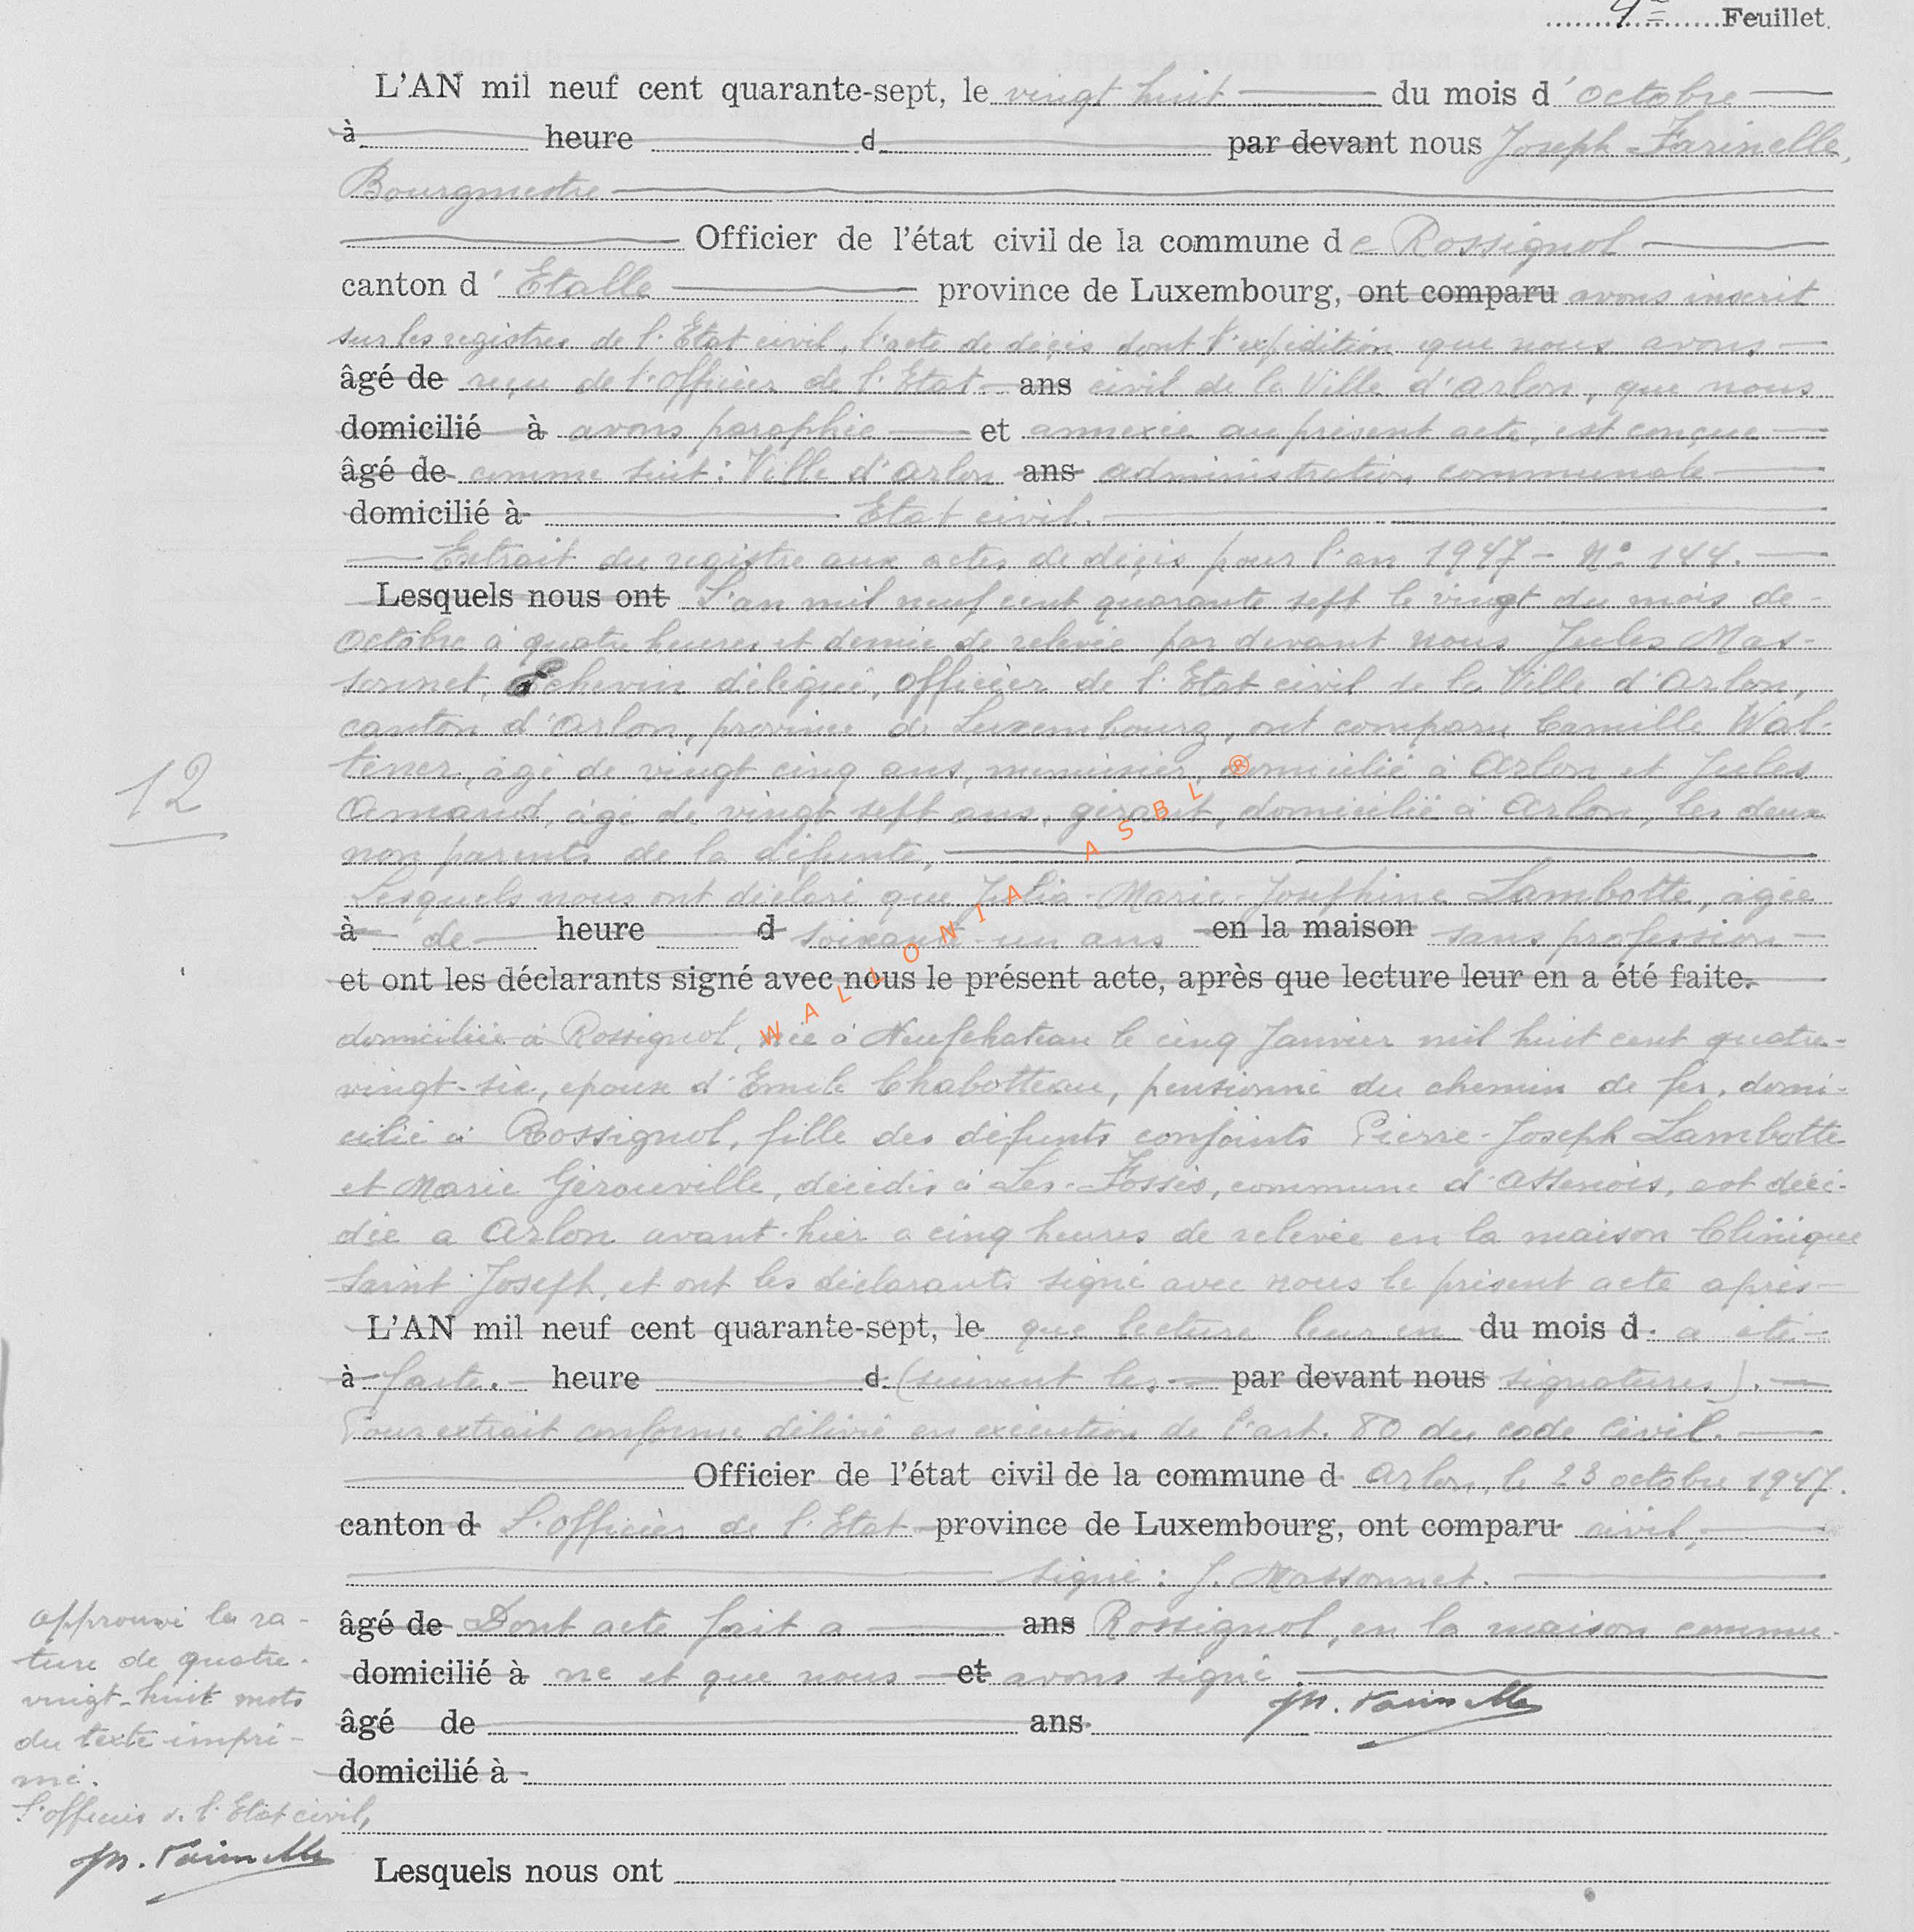 4e Feuillet.
L'AN mil neuf cent quarante-sept, le vingt huit du mois d'octobre
à heure d par devant nous Joseph Farinelle,
Bourgmestre
Officier de l'état civil de la commune de Rossignol
canton d'Etalle province de Luxembourg, ont comparu avons inscrit
sur les registres de l'Etat civil, l'acte de décès dont l'expédition que nous avons
âgé de reçu de l'officier de l'Etat ans civil de la Ville d'Arlon, que nous
domicilié à avons paraphée et annexée au présent acte, est conçue
âgé de comme suit : Ville d'Arlon ans administration communale
domicilié à Etat civil.
Extrait du registre aux actes de décès pour l'an 1947 - N° 144.
Lesquels nous ont L'an mil neuf cent quarante sept le vingt du mois de
Octobre à quatre heures et demie de relevée par devant nous Jules Mas-
sonnet, Echevin délégué, officier de l'Etat civil de la Ville d'Arlon,
canton d'Arlon, province de Luxembourg, ont comparu Camille Wal-
tener, âgé de vingt cinq ans, menuisier, domicilié à Arlon et Jules
Amand, âgé de vingt sept ans, gérant, domicilié à Arlon, les deux
12
non parents de la défunte,
Lesquels nous ont déclaré que Julia-Marie-Josephine Lambotte, âgée
à de heure d soixante-un ans en la maison sans profession
et ont les déclarants signé avec nous le présent acte, après que lecture leur en a été faite.
domiciliée à Rossignol, née à Neufchateau le cinq Janvier mil huit cent quatre-
vingt-six, epoux d'Emile Chabotteau, pensionné du chemin de fer, domi-
cilié à Rossignol, fille des défunts conjoints Pierre-Joseph Lambotte
et Marie Gérouville, décédés à Les-Fossés, commune d'Assenois, est décé-
dée a Arlon avant-hier a cinq heures de relevée en la maison Clinique
Saint Joseph, et ont les déclarants signé avec nous le présent acte après
L'AN mil neuf cent quarante-sept, le que lecture leur en du mois d. a été
à faite. heure d (suivent les par devant nous signatures).
Pour extrait conforme délivré en exécution de l'art. 80 du code Civil.
Officier de l'état civil de la commune d Arlon, le 23 octobre 1947.
canton d L'officier de l'Etat province de Luxembourg, ont comparu civil,
signé : J. Massonnet.
âgé de Dont acte fait a ans Rossignol, en la maison commu-
domicilié à ne et que nous et avons signé
âgé de ans
domicilié à
Lesquels nous ont
approuvé la ra-
ture de quatre-
vingt-huit mots
du texte impri-
mé.
L'officier de l'Etat civil,
Jh. Farinelle
Jh. Farinelle
WALLONIA ASBL ®